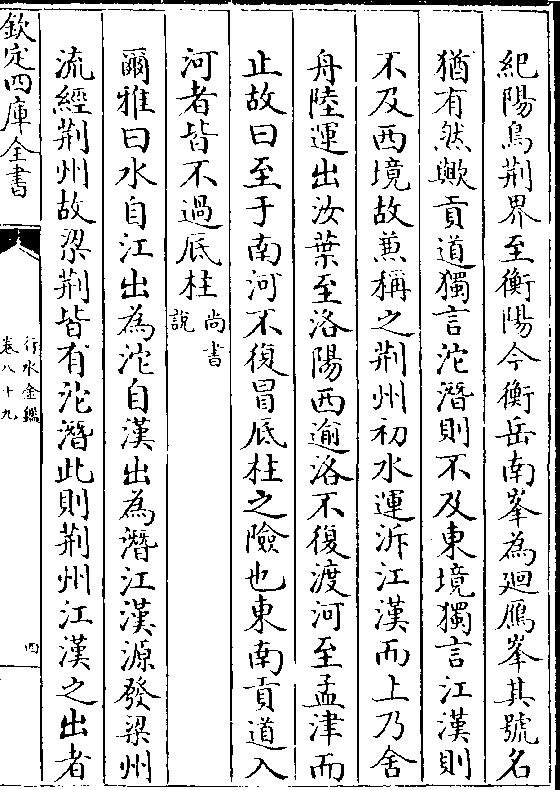 紀陽鳥荆界至衡陽今衡岳南峯為廻鴈峯其號名
猶有然歟貢道獨言沱潛則不及東境獨言江漢則
不及西境故兼稱之荆州初水運泝江漢而上乃舍
舟陸運出汝葉至洛陽西逾洛不復渡河至孟津而
止故曰至于南河不復冒底柱之險也東南貢道入
河者皆不過底柱尚書說
爾雅曰水自江出為沱自漢出為潛江漢源發梁州
流經荆州故梁荆皆有沱潛此則荆州江漢之出者
欽定四庫全書
行水金鑑
卷八十九
四